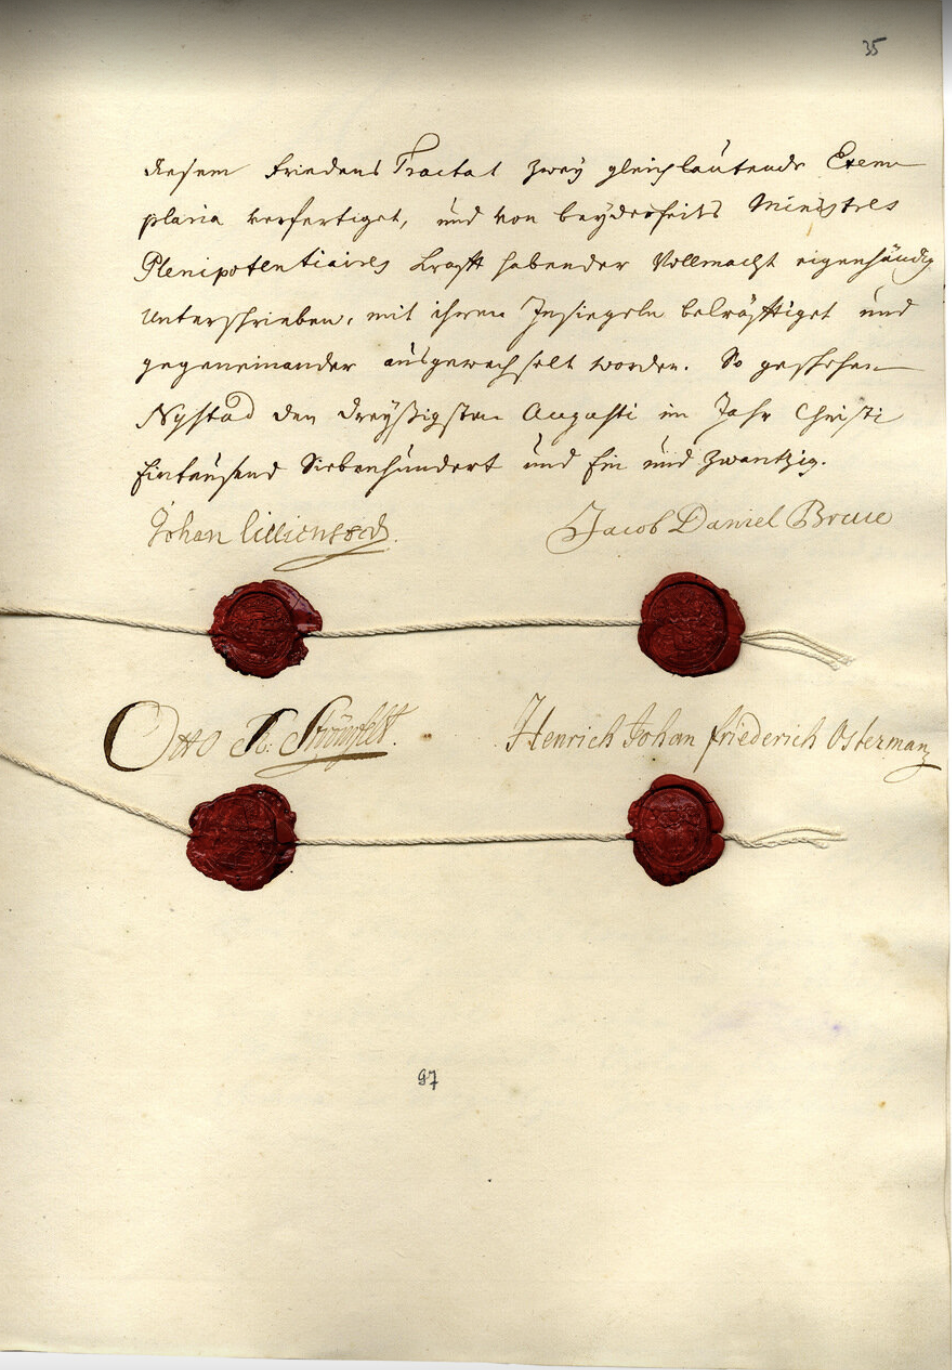 35
diesem Friedens Tractat zwey gleichlautende Exem
plaria verfertiget, und von beyderseits Ministres
Plenipotentiaires krafft habender Vollmacht eigenhändig
unterschrieben, mit ihren Insiegeln bekräfftiget und
gegeneinander ausgewechselt worden. So geschehen
Nystad den dreyßigsten Augusti im Jahr Christi
Eintausend Siebenhundert und Ein und Zwantzig.
Johan Lillienstedt. Jacob Daniel Bruce
Otto R. Strömfelt. Henrich Johan Friederich Osterman
97